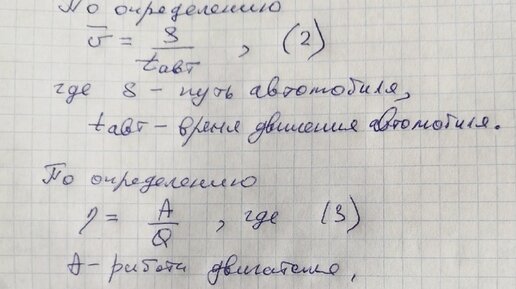 По определению
v̅ = S / t авт , (2)
где S – путь автомобиля,
t авт – время движения автомобиля.
По определению
η = A / Q , где (3)
A – работа двигателя,